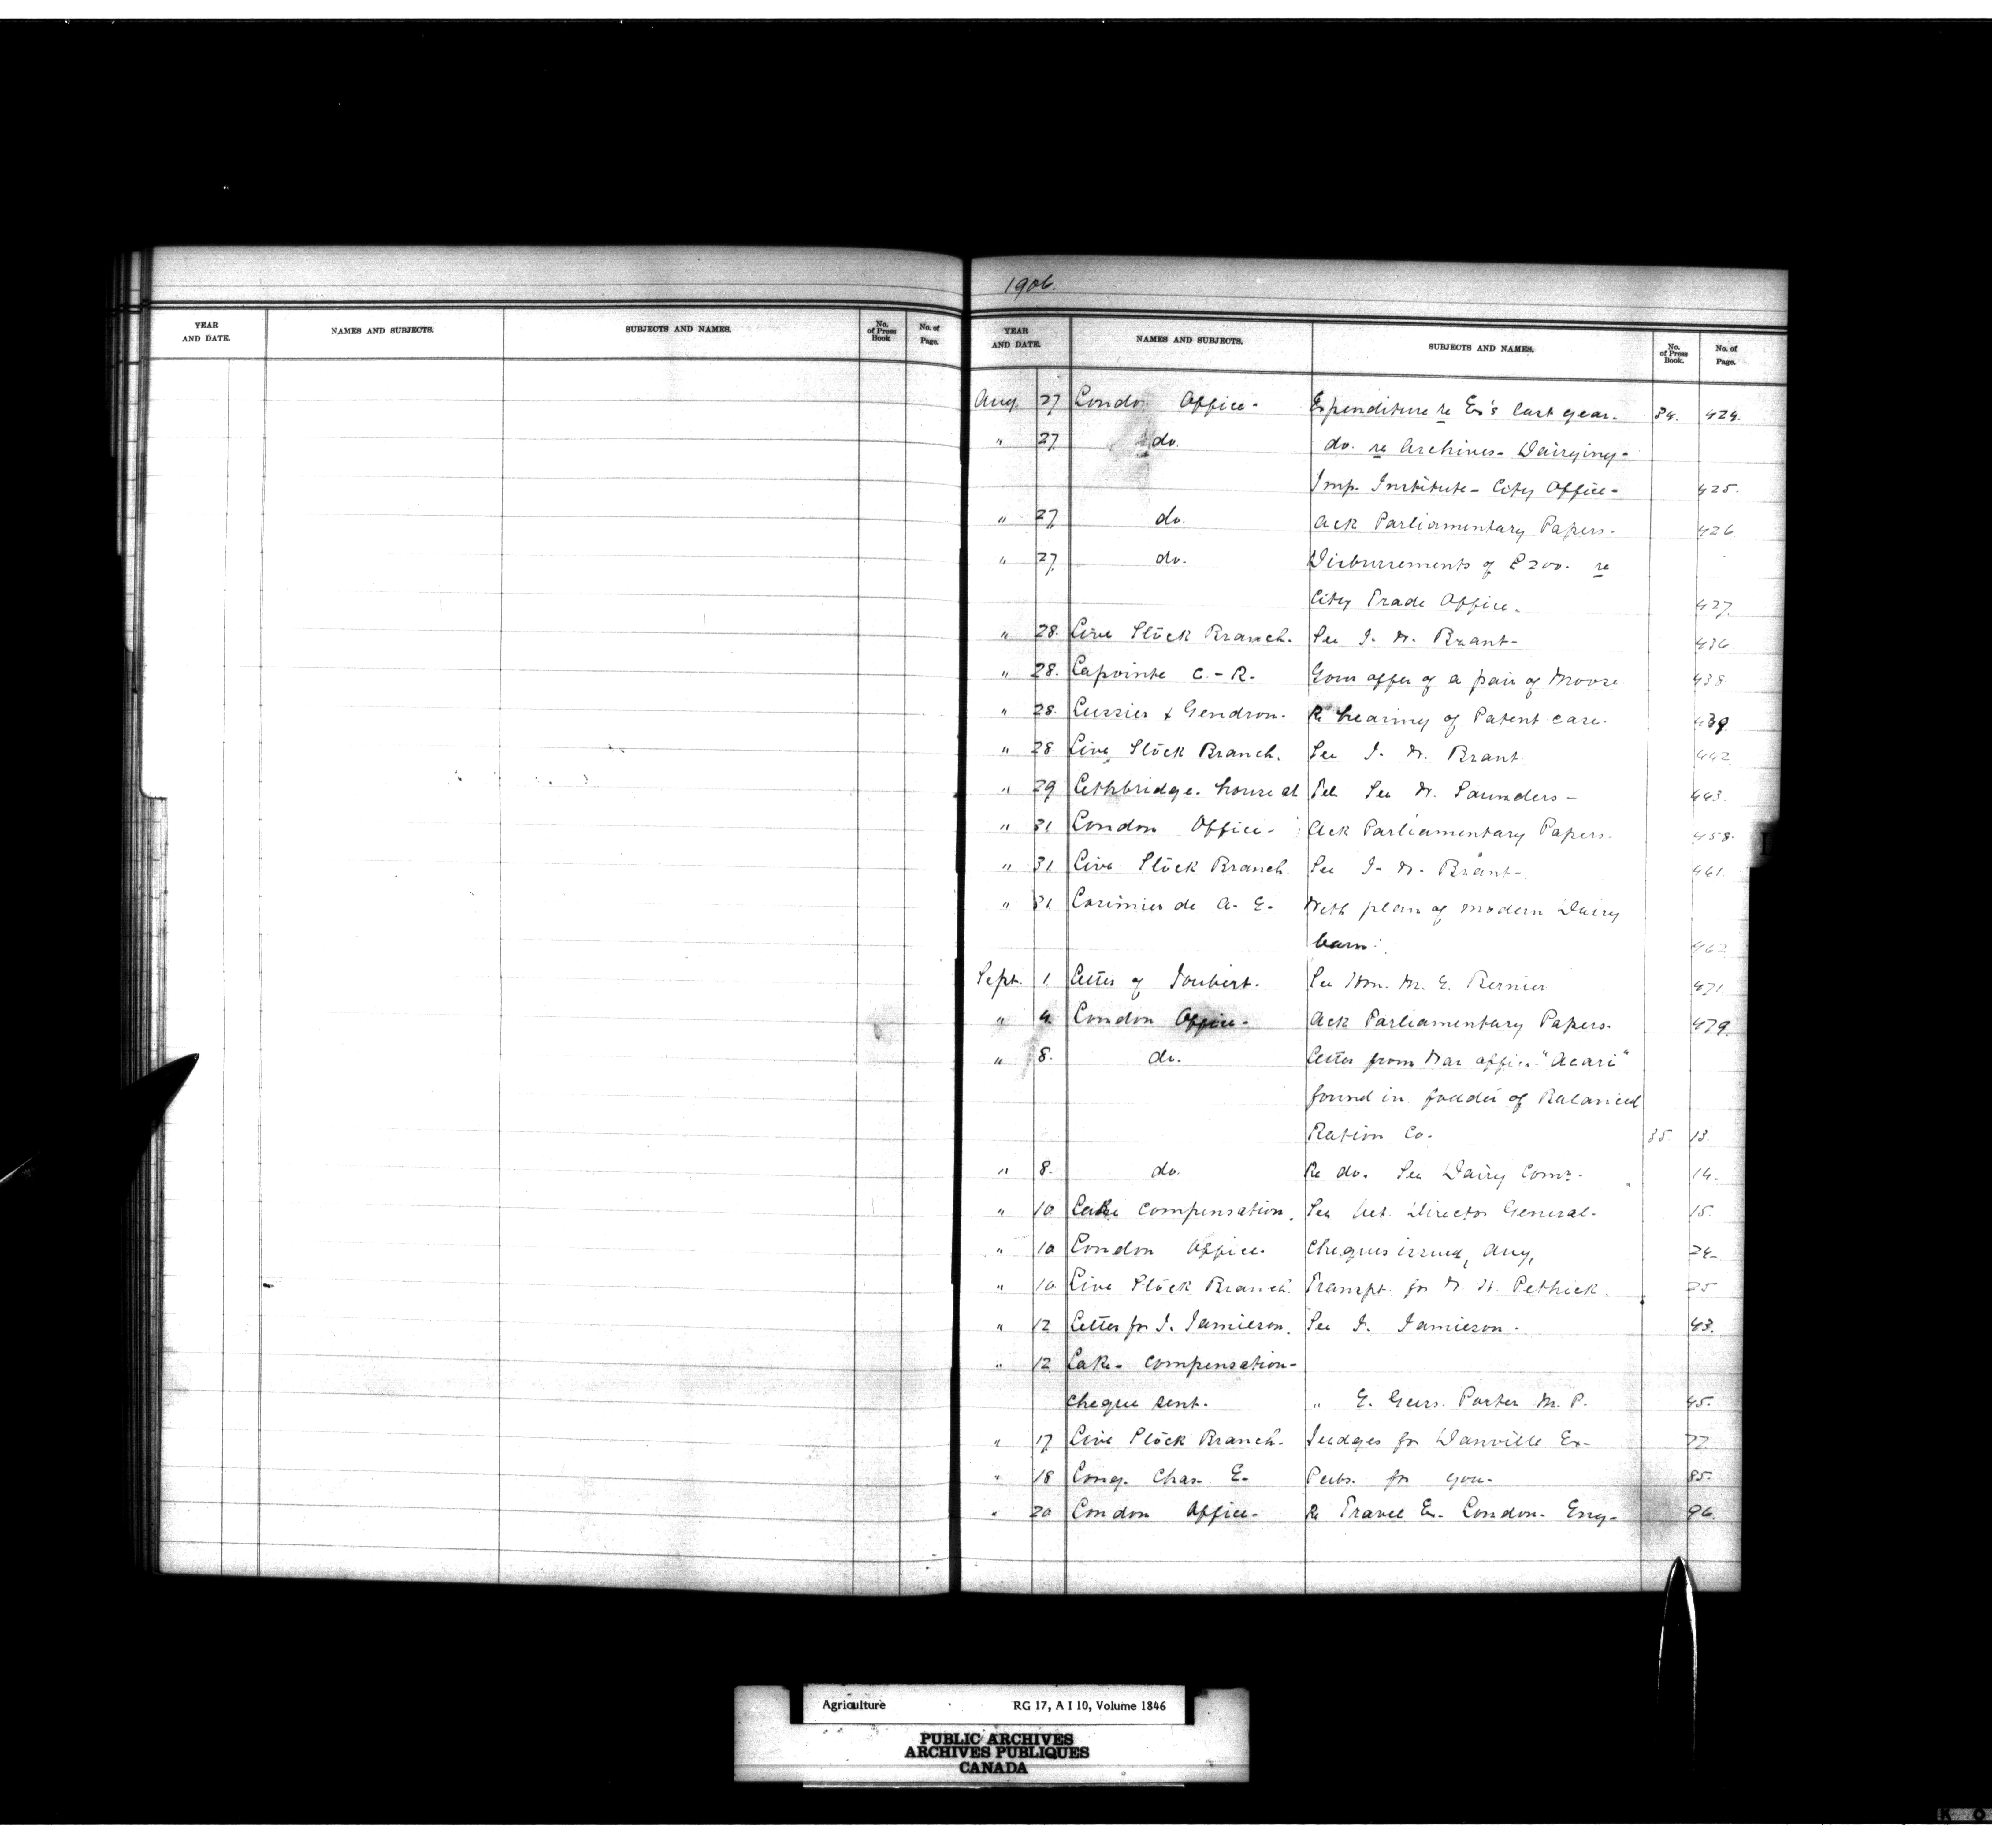 YEAR AND DATE. NAMES AND SUBJECTS. SUBJECTS AND NAMES. No. of Press Book No. of Page.
1906.
YEAR AND DATE. NAMES AND SUBJECTS. SUBJECTS AND NAMES. No. of Press Book. No. of Page.
Aug. 27 London Office- Expenditure re Ex's last year. 34. 424.
" 27 do. do. re Archives- Dairying-
Imp. Institute- City Office- 425.
" 27 do. Ack Parliamentary Papers. 426
" 27 do. Disbursements of £200. re
City Trade Office. 427.
" 28. Live Stock Branch. See J. W. Brant- 436
" 28. Lapointe C.-R. Your offer of a pair of Moose 438.
" 28. Lussier & Gendron. Re hearing of Patent case. 439
" 28 Live Stock Branch. See J. W. Brant 442
" 29 Lethbridge. house at Tel. See W. Saunders- 443.
" 31 London Office- Ack Parliamentary Papers. 458.
" 31. Live Stock Branch See J. W. Brant- 461.
" 31 de A. E. With plan of modern Dairy
barn. 462
Sept. 1 Letter of Joubert. See Hon. M. E. Bernier 471
" 4. London Office- Ack Parliamentary Papers. 479.
" 8. do. Letter from War office "Acari"
found in fodder of Balanced
Ration Co. 35. 13.
" 8. do. Re do. See Dairy Comr. 14.
" 10 Lake compensation. See Vet. Director General. 15.
" 10 London Office- Cheques issued, Aug, 24-
" 10. Live Stock Branch Transpt. for W. H. Pethick. 25
" 12 Letter for J. Jamieson. See J. Jamieson. 43.
" 12 Lake- compensation-
cheque sent. " E. Geurs. Porter M. P. 45.
" 17 Live Stock Branch. Judges for Danville Ex- 77
" 18 Long. Chas. E. Pubs. for you- 85.
" 20 London Office- Re Travel Ex. London- Eng- 96.
Agriculture RG 17, A I 10, Volume 1846
PUBLIC ARCHIVES
ARCHIVES PUBLIQUES
CANADA